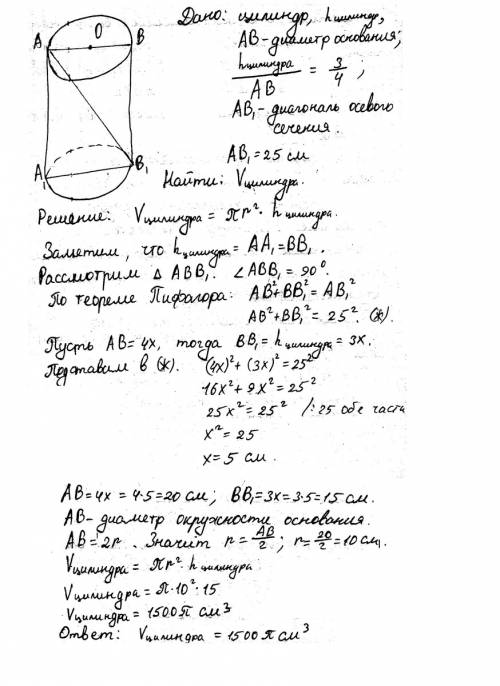 Дано: цилиндр, h цилиндр,
A O B
AB - диаметр основания;
h цилиндра / AB = 3/4 ;
AB₁ - диагональ осевого
сечения.
AB₁ = 25 см
A₁ B₁
Найти: V цилиндра.
Решение: V цилиндра = πr² · h цилиндра.
Заметим, что h цилиндра = AA₁ = BB₁.
Рассмотрим Δ ABB₁. ∠ABB₁ = 90°.
По теореме Пифагора: AB² + BB₁² = AB₁²
AB² + BB₁² = 25². (ж).
Пусть AB = 4x, тогда BB₁ = h цилиндра = 3x.
Подставим в (ж). (4x)² + (3x)² = 25²
16x² + 9x² = 25²
25x² = 25² /:25 обе части
x² = 25
x = 5 см.
AB = 4x = 4·5 = 20 см; BB₁ = 3x = 3·5 = 15 см.
AB - диаметр окружности основания.
AB = 2r. Значит r = AB/2 ; r = 20/2 = 10 см.
V цилиндра = πr² · h цилиндра
V цилиндра = π·10²·15
V цилиндра = 1500π см³
Ответ: V цилиндра = 1500π см³